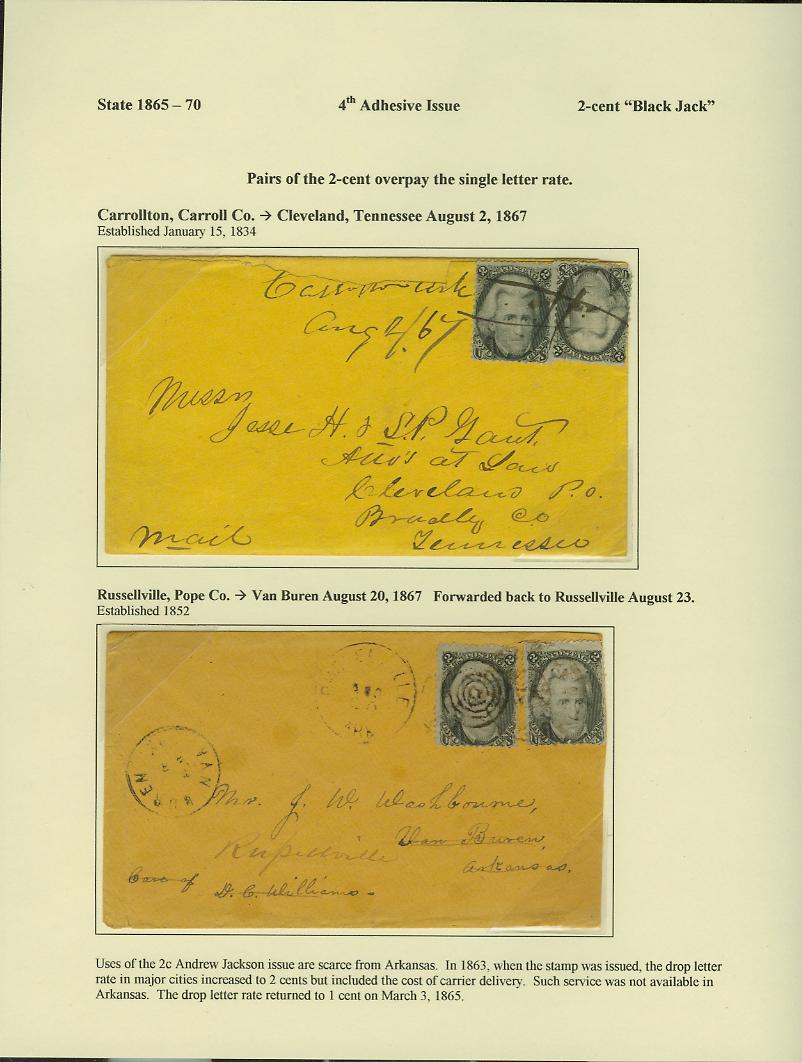 State 1865 – 70 4th Adhesive Issue 2-cent “Black Jack”
Pairs of the 2-cent overpay the single letter rate.
Carrollton, Carroll Co. → Cleveland, Tennessee August 2, 1867
Established January 15, 1834
Carrollton Ark
Aug 2/67
Messrs
Jesse H. & S.P. Gaut.
Atto's at Law
Cleveland P.o.
Bradley Co
Mail Tennessee
Russellville, Pope Co. → Van Buren August 20, 1867 Forwarded back to Russellville August 23.
Established 1852
ARK
VAN BUREN
Mr. J. W. Washbourne,
Van Buren,
Russellville
Arkansas.
Care of
D. C. Williams.
Uses of the 2c Andrew Jackson issue are scarce from Arkansas. In 1863, when the stamp was issued, the drop letter
rate in major cities increased to 2 cents but included the cost of carrier delivery. Such service was not available in
Arkansas. The drop letter rate returned to 1 cent on March 3, 1865.